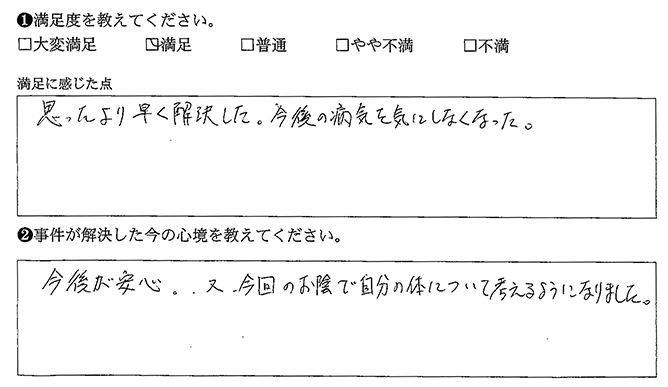 ❶満足度を教えてください。
□大変満足 ☑満足 □普通 □やや不満 □不満
満足に感じた点
思ったより早く解決した。今後の病気を気にしなくなった。
❷事件が解決した今の心境を教えてください。
今後が安心。又、今回のお陰で自分の体について考えるようになりました。